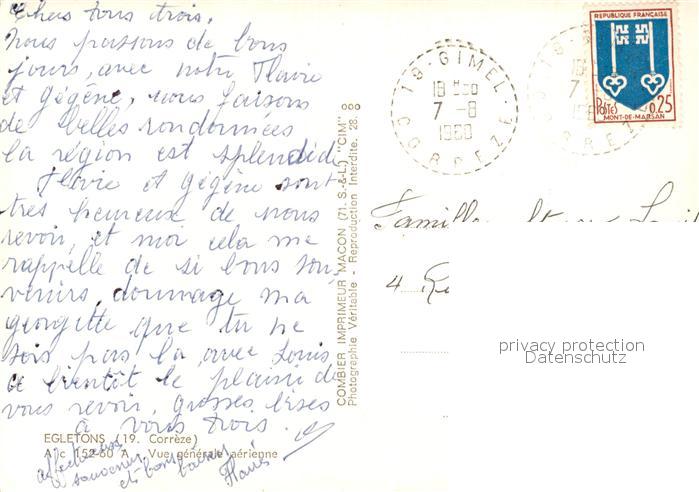 Chers tous trois.
Nous passons de bons
jours, avec notre Flavie
et Gégène, nous faisons
de belles randonnées
la région est splendide
Flavie et Gégène sont
très heureux de nous
revoir, et moi cela me
rappelle de si bons sou-
venirs, dommage ma
georgette que tu ne
sois pas la avec Louis
a bientôt le plaisir de
vous revoir, grosses bises
à vous trois.
EGLETONS (19. Corrèze)
A c 152-60 A Vue générale aérienne
affectueux
souvenirs
et bons baisers
COMBIER IMPRIMEUR MACON (71. S.-&-L.) "CIM"
Photographie Véritable - Reproduction Interdite. 28.
19-GIMEL
18 H30
7 -8
CORREZE
REPUBLIQUE FRANÇAISE
POSTES
0,25
MONT-DE-MARSAN
Famille
4
privacy protection
Datenschutz